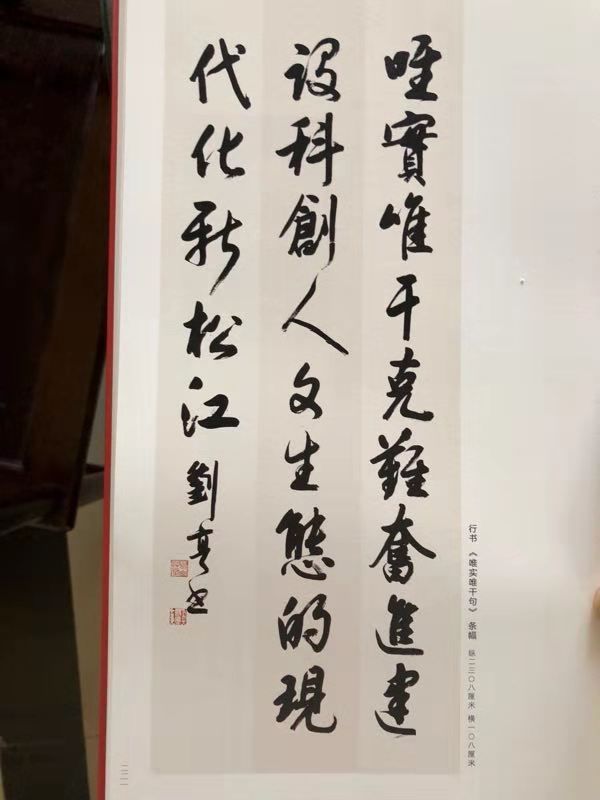 唯實唯干克難奮進建
設科創人文生態的現
代化新松江 劉
行书 《唯实唯干句》 条幅 纵二三〇八厘米 横一〇八厘米